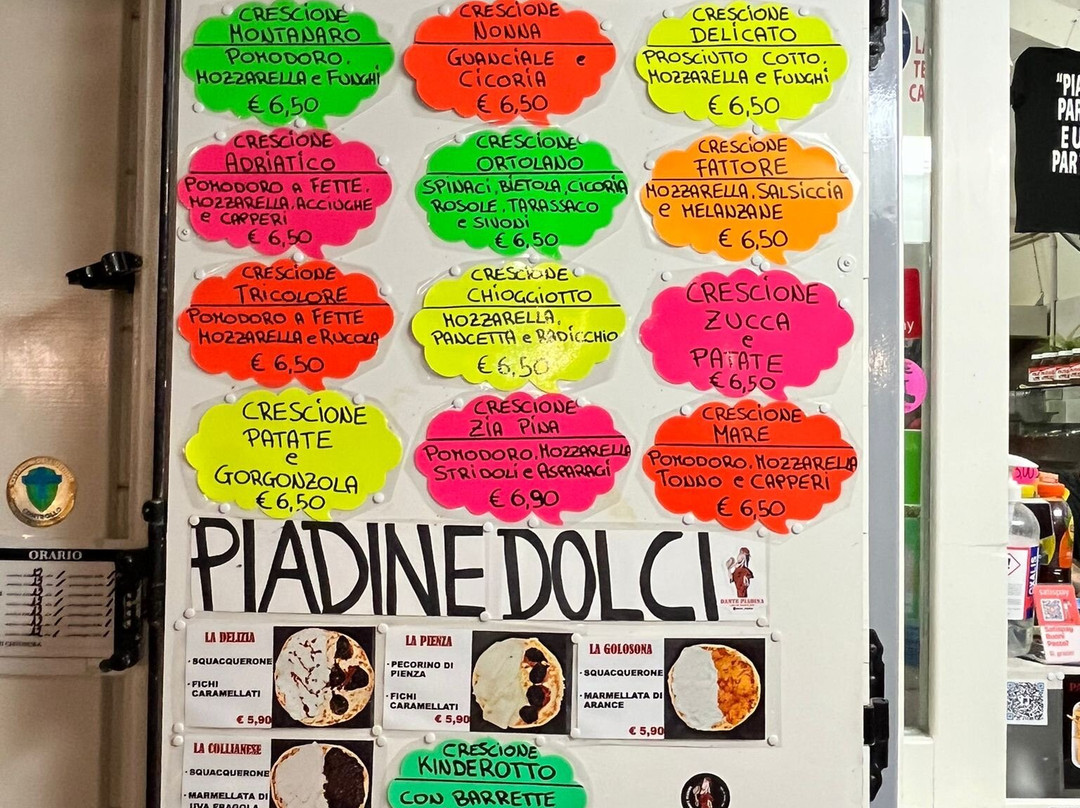 CRESCIONE
MONTANARO
POMODORO.
MOZZARELLA e FUNGHI
€ 6,50
CRESCIONE
NONNA
GUANCIALE e
CICORIA
€ 6,50
CRESCIONE
DELICATO
PROSCIUTTO COTTO.
MOZZARELLA e FUNGHI
€ 6,50
CRESCIONE
ADRIATICO
POMODORO A FETTE.
MOZZARELLA, ACCIUGHE
e CAPPERI
€ 6,50
CRESCIONE
ORTOLANO
SPINACI, BIETOLA, CICORIA
ROSOLE, TARASSACO
e SINONI
€ 6,50
CRESCIONE
FATTORE
MOZZARELLA, SALSICCIA
e MELANZANE
€ 6,50
CRESCIONE
TRICOLORE
POMODORO A FETTE
MOZZARELLA e RUCOLA
€ 6,50
CRESCIONE
CHIOGGIOTTO
MOZZARELLA,
PANCETTA e RADICCHIO
€ 6,50
CRESCIONE
ZUCCA
e
PATATE
€ 6,50
CRESCIONE
PATATE
e
GORGONZOLA
€ 6,50
CRESCIONE
ZIA PINA
POMODORO, MOZZARELLA
STRIDOLI e ASPARAGI
€ 6,90
CRESCIONE
MARE
POMODORO, MOZZARELLA
TONNO e CAPPERI
€ 6,50
PIADINE DOLCI
DANTE PIADINA
LA DELIZIA
- SQUACQUERONE
- FICHI
CARAMELLATI
€ 5,90
LA PIENZA
- PECORINO DI
PIENZA
- FICHI
CARAMELLATI
€ 5,90
LA GOLOSONA
- SQUACQUERONE
- MARMELLATA DI
ARANCE
€ 5,90
LA COLLIANESE
- SQUACQUERONE
- MARMELLATA DI
UVA FRAGOLA
CRESCIONE
KINDEROTTO
CON BARRETTE
ORARIO
"PIA
PAR
E U
PAR
LA
TE
CA
OXALIS
satispay